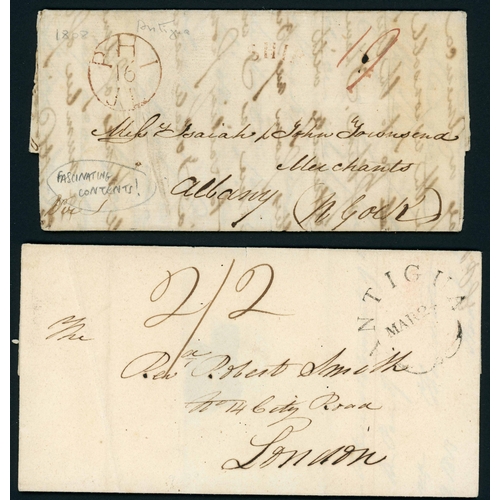 1808 Antigua
PHI
16
JA
SHIP
19
Messrs Isaiah & John Townsend
Merchants
Albany
N York
FASCINATING
CONTENTS!
2/2
ANTIGUA
MAR
The
Revd Robert Smith
No 14 City Road
London